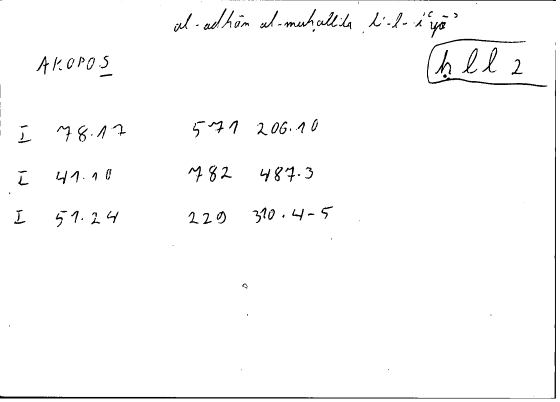 al-adhān al-muḥallila li-l-iʿyāʾ
ḥll 2
AKOPOS
I 78.17 571 206.10
I 41.10 782 487.3
I 51.24 229 310.4-5